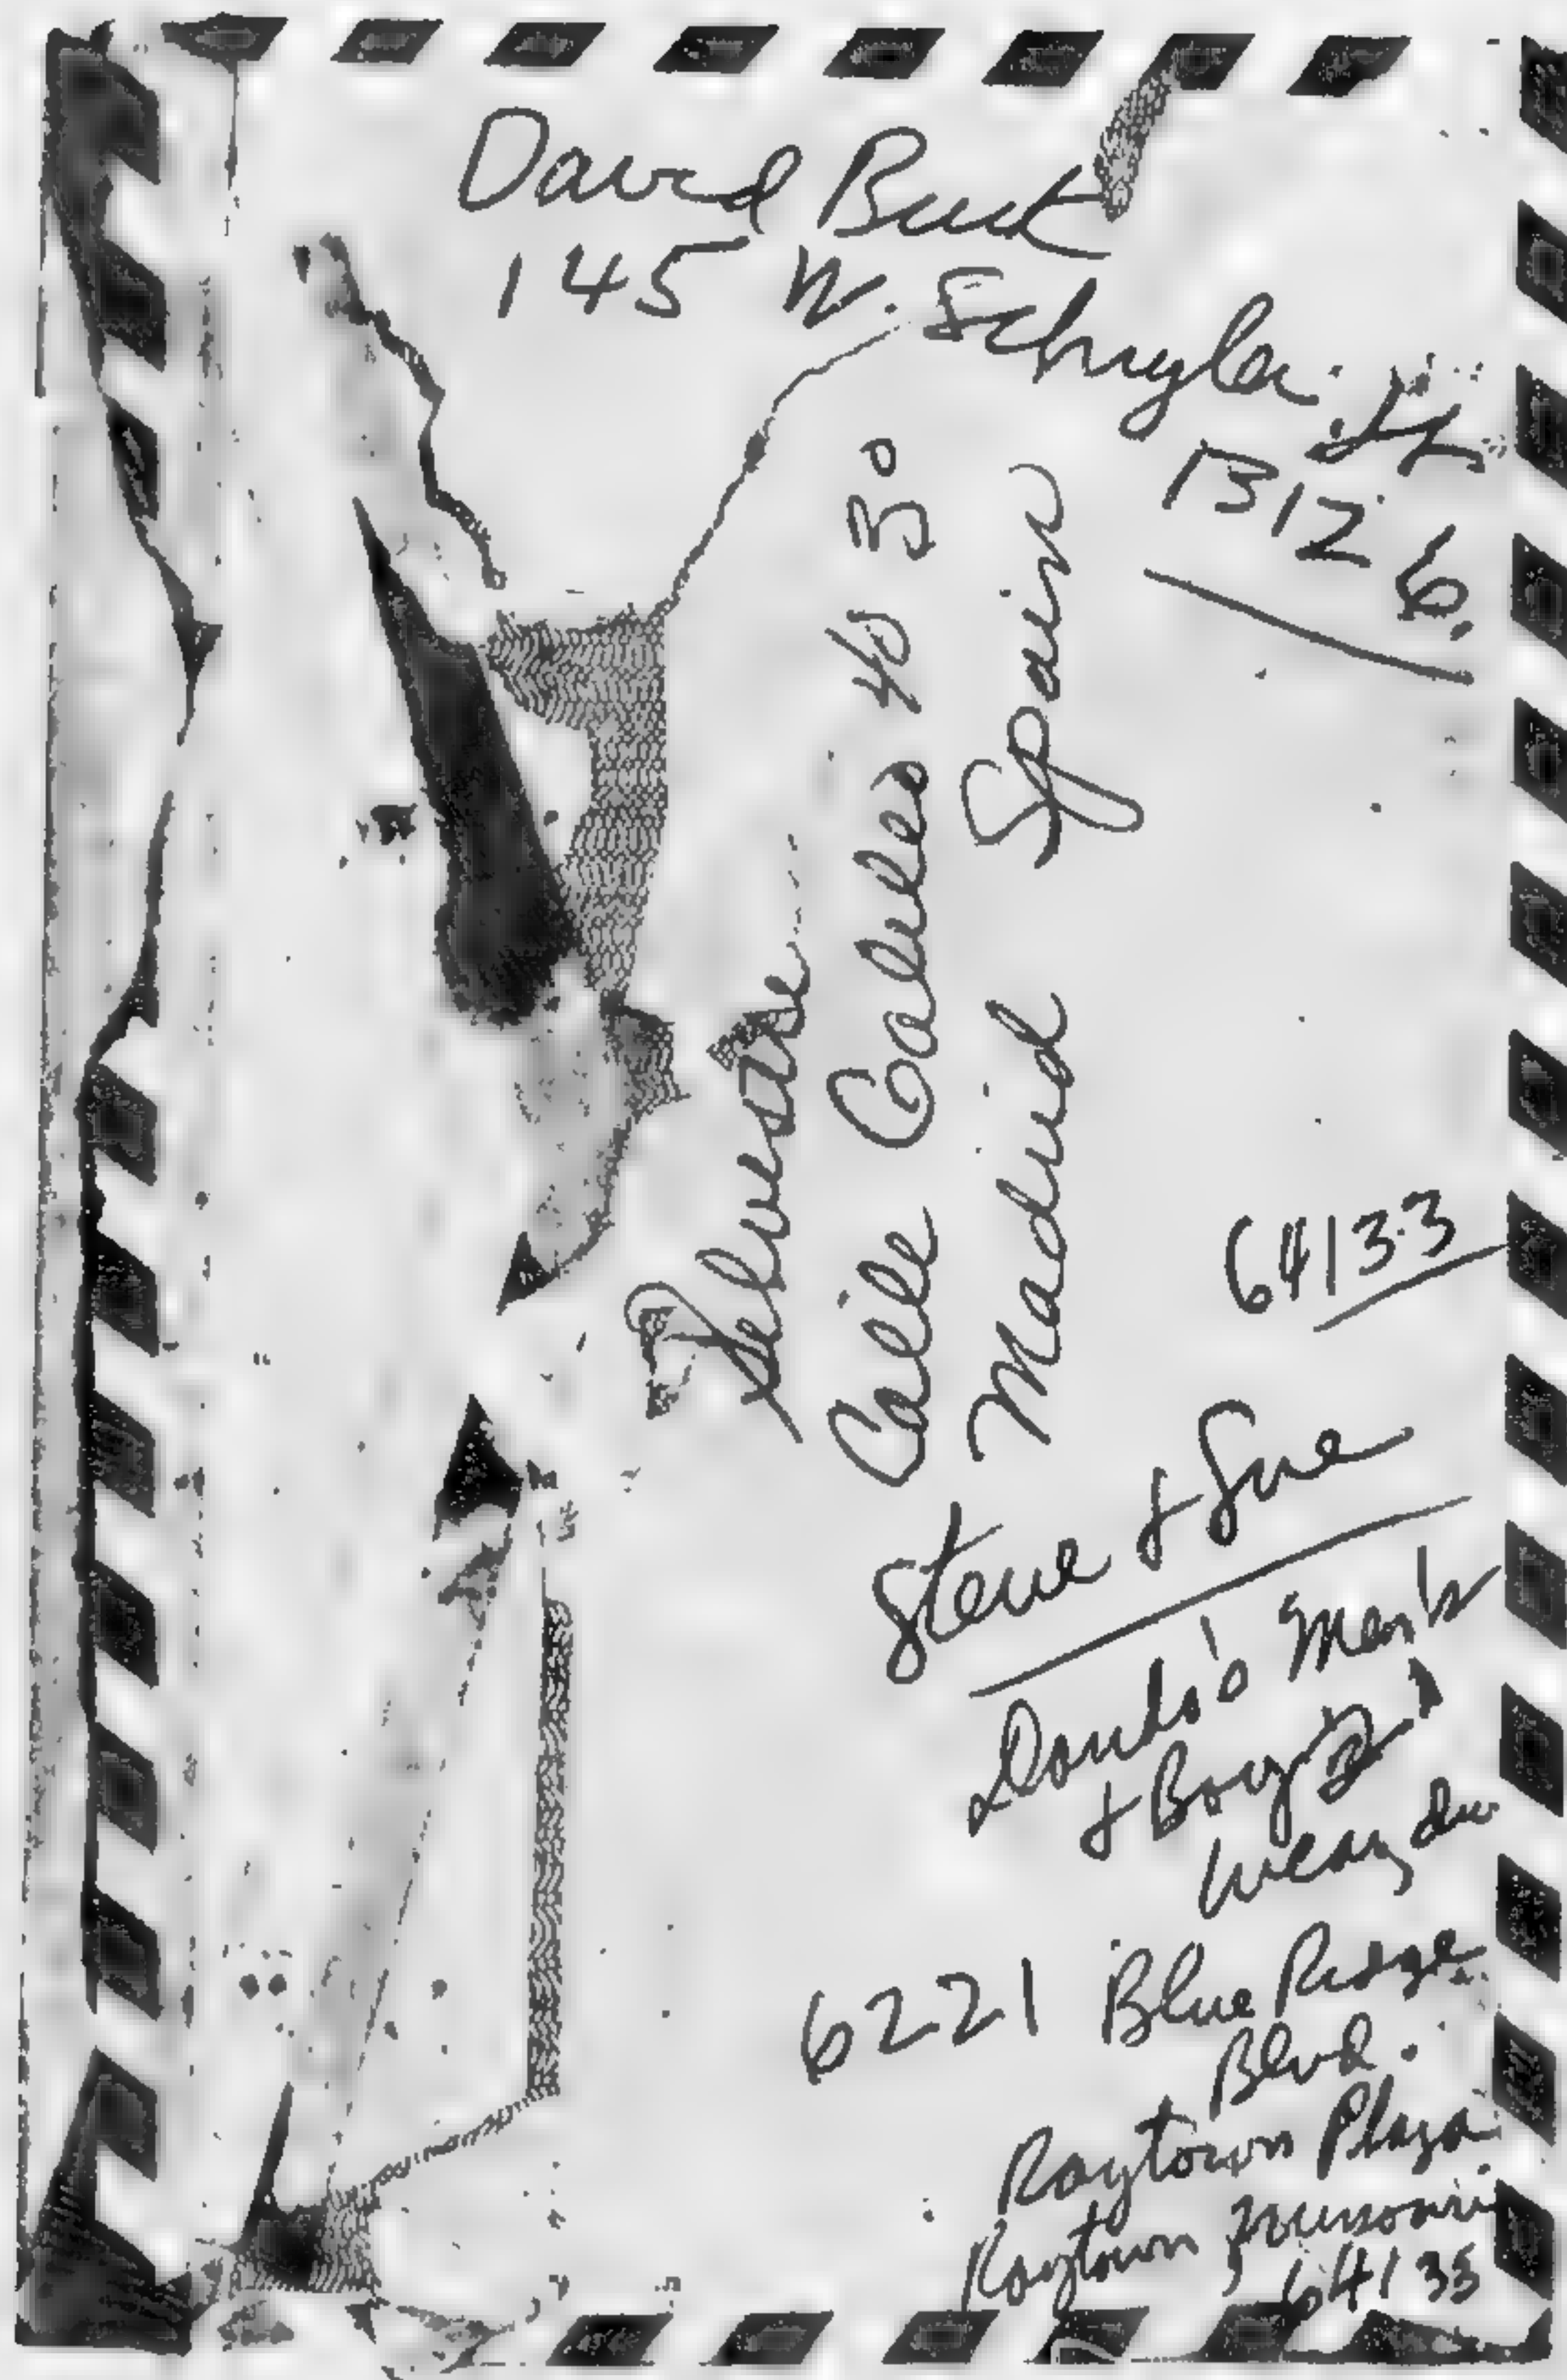 David Burt
145 W. Schuyler St.
13126.
Silvestre
Calle Galileo 40 3º
Madrid Spain
64133
Steve & Sue
David's Men's
& Boy's
Wear, Inc
6221 Blue Ridge
Blvd.
Raytown Plaza
Raytown, Missouri
64133